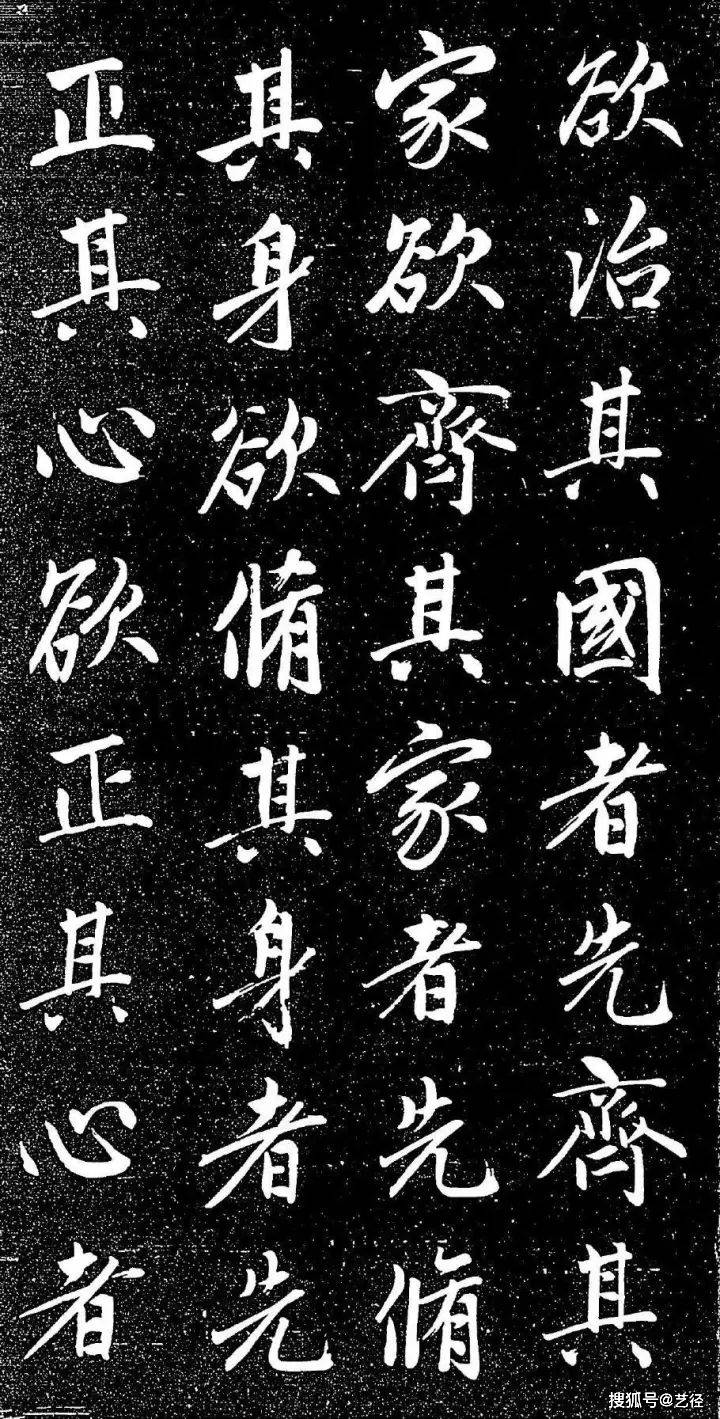 欲治其國者先齊其
家欲齊其家者先脩
其身欲脩其身者先
正其心欲正其心者
搜狐号@艺径